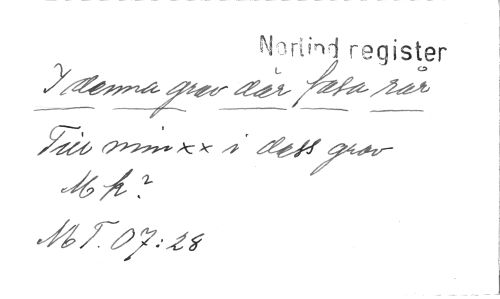 Norlind register
I denna grav där fasa rår
Till min x x i dess grav
M k?
MT. 07:28